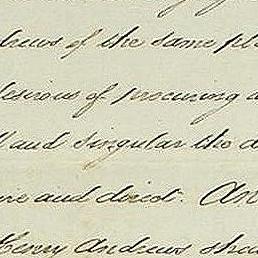 drews of the same pla
desirous of procuring a
and singular the d
re and direct. An
Henry Andrews sha